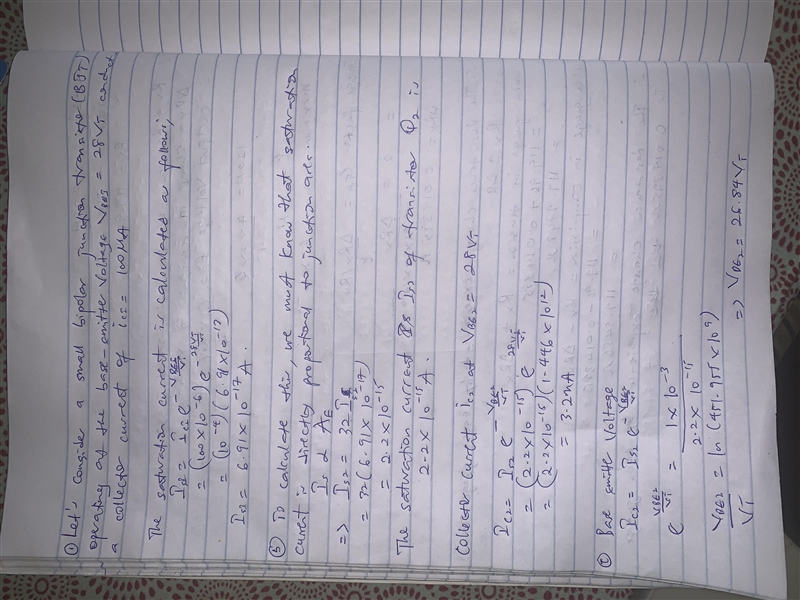 ① Let's consider a small bipolar junction transistor (BJT)
operating at the base-emitter voltage V_BE1 = 28V_T and
a collector current of i_c1 = 100 μA
The saturation current is calculated as follows,
I_s1 = I_c1 e^{-V_BE1/V_T}
= (100 × 10^-6) e^{-28V_T/V_T}
= (10^-4) (6.91 × 10^-13)
I_s1 = 6.91 × 10^-17 A.
⑤ To calculate this, we must know that saturation
current is directly proportional to junction area.
I_s α A_E
=> I_s2 = 32 I_s1
= 32 (6.91 × 10^-17)
= 2.2 × 10^-15
The saturation current I_s2 of transistor Q_2 is
2.2 × 10^-15 A.
Collector current I_c2 at V_BE2 = 28V_T
I_c2 = I_s2 e^{-V_BE2/V_T}
= (2.2 × 10^-15) e^{28V_T/V_T}
= (2.2 × 10^-15) (1.446 × 10^12)
= 3.2 mA
Base emitter voltage
I_c2 = I_s2 e^{-V_BE2/V_T}
e^{V_BE2/V_T} = 1 × 10^-3 / 2.2 × 10^-15
V_BE2 / V_T = ln (451.955 × 10^9)
=> V_BE2 = 26.84 V_T